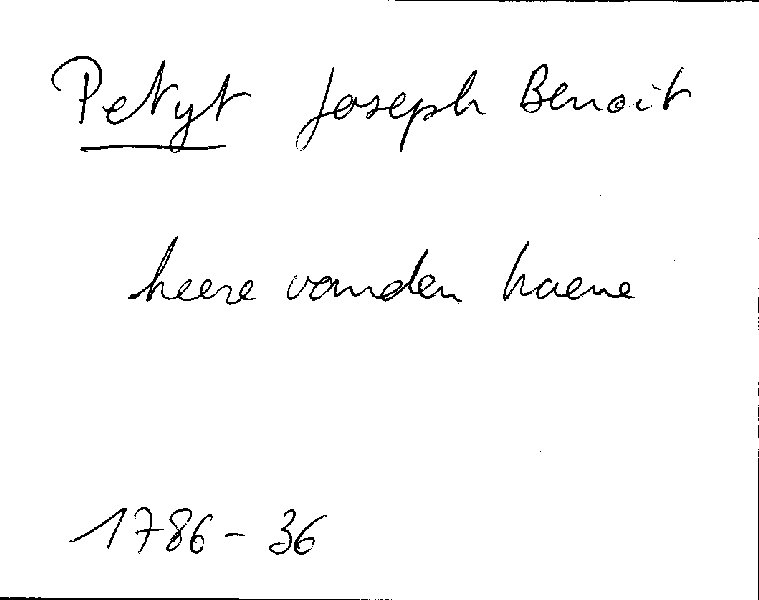 Petyt Joseph Benoit
heere vanden haene
1786 - 36